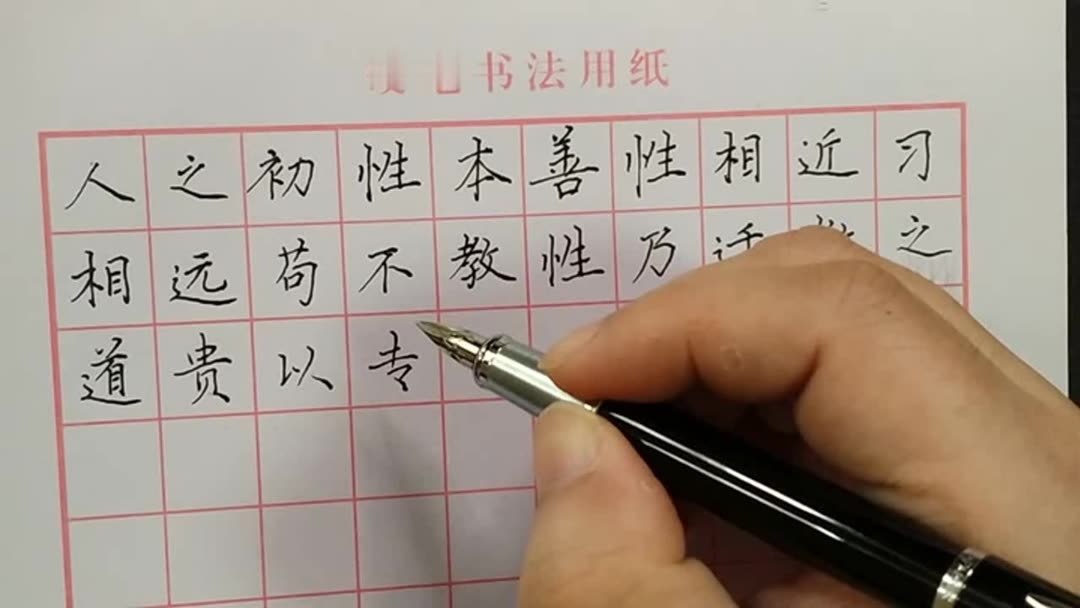 书法用纸
人之初性本善性相近习
相远苟不教性乃之
道贵以专